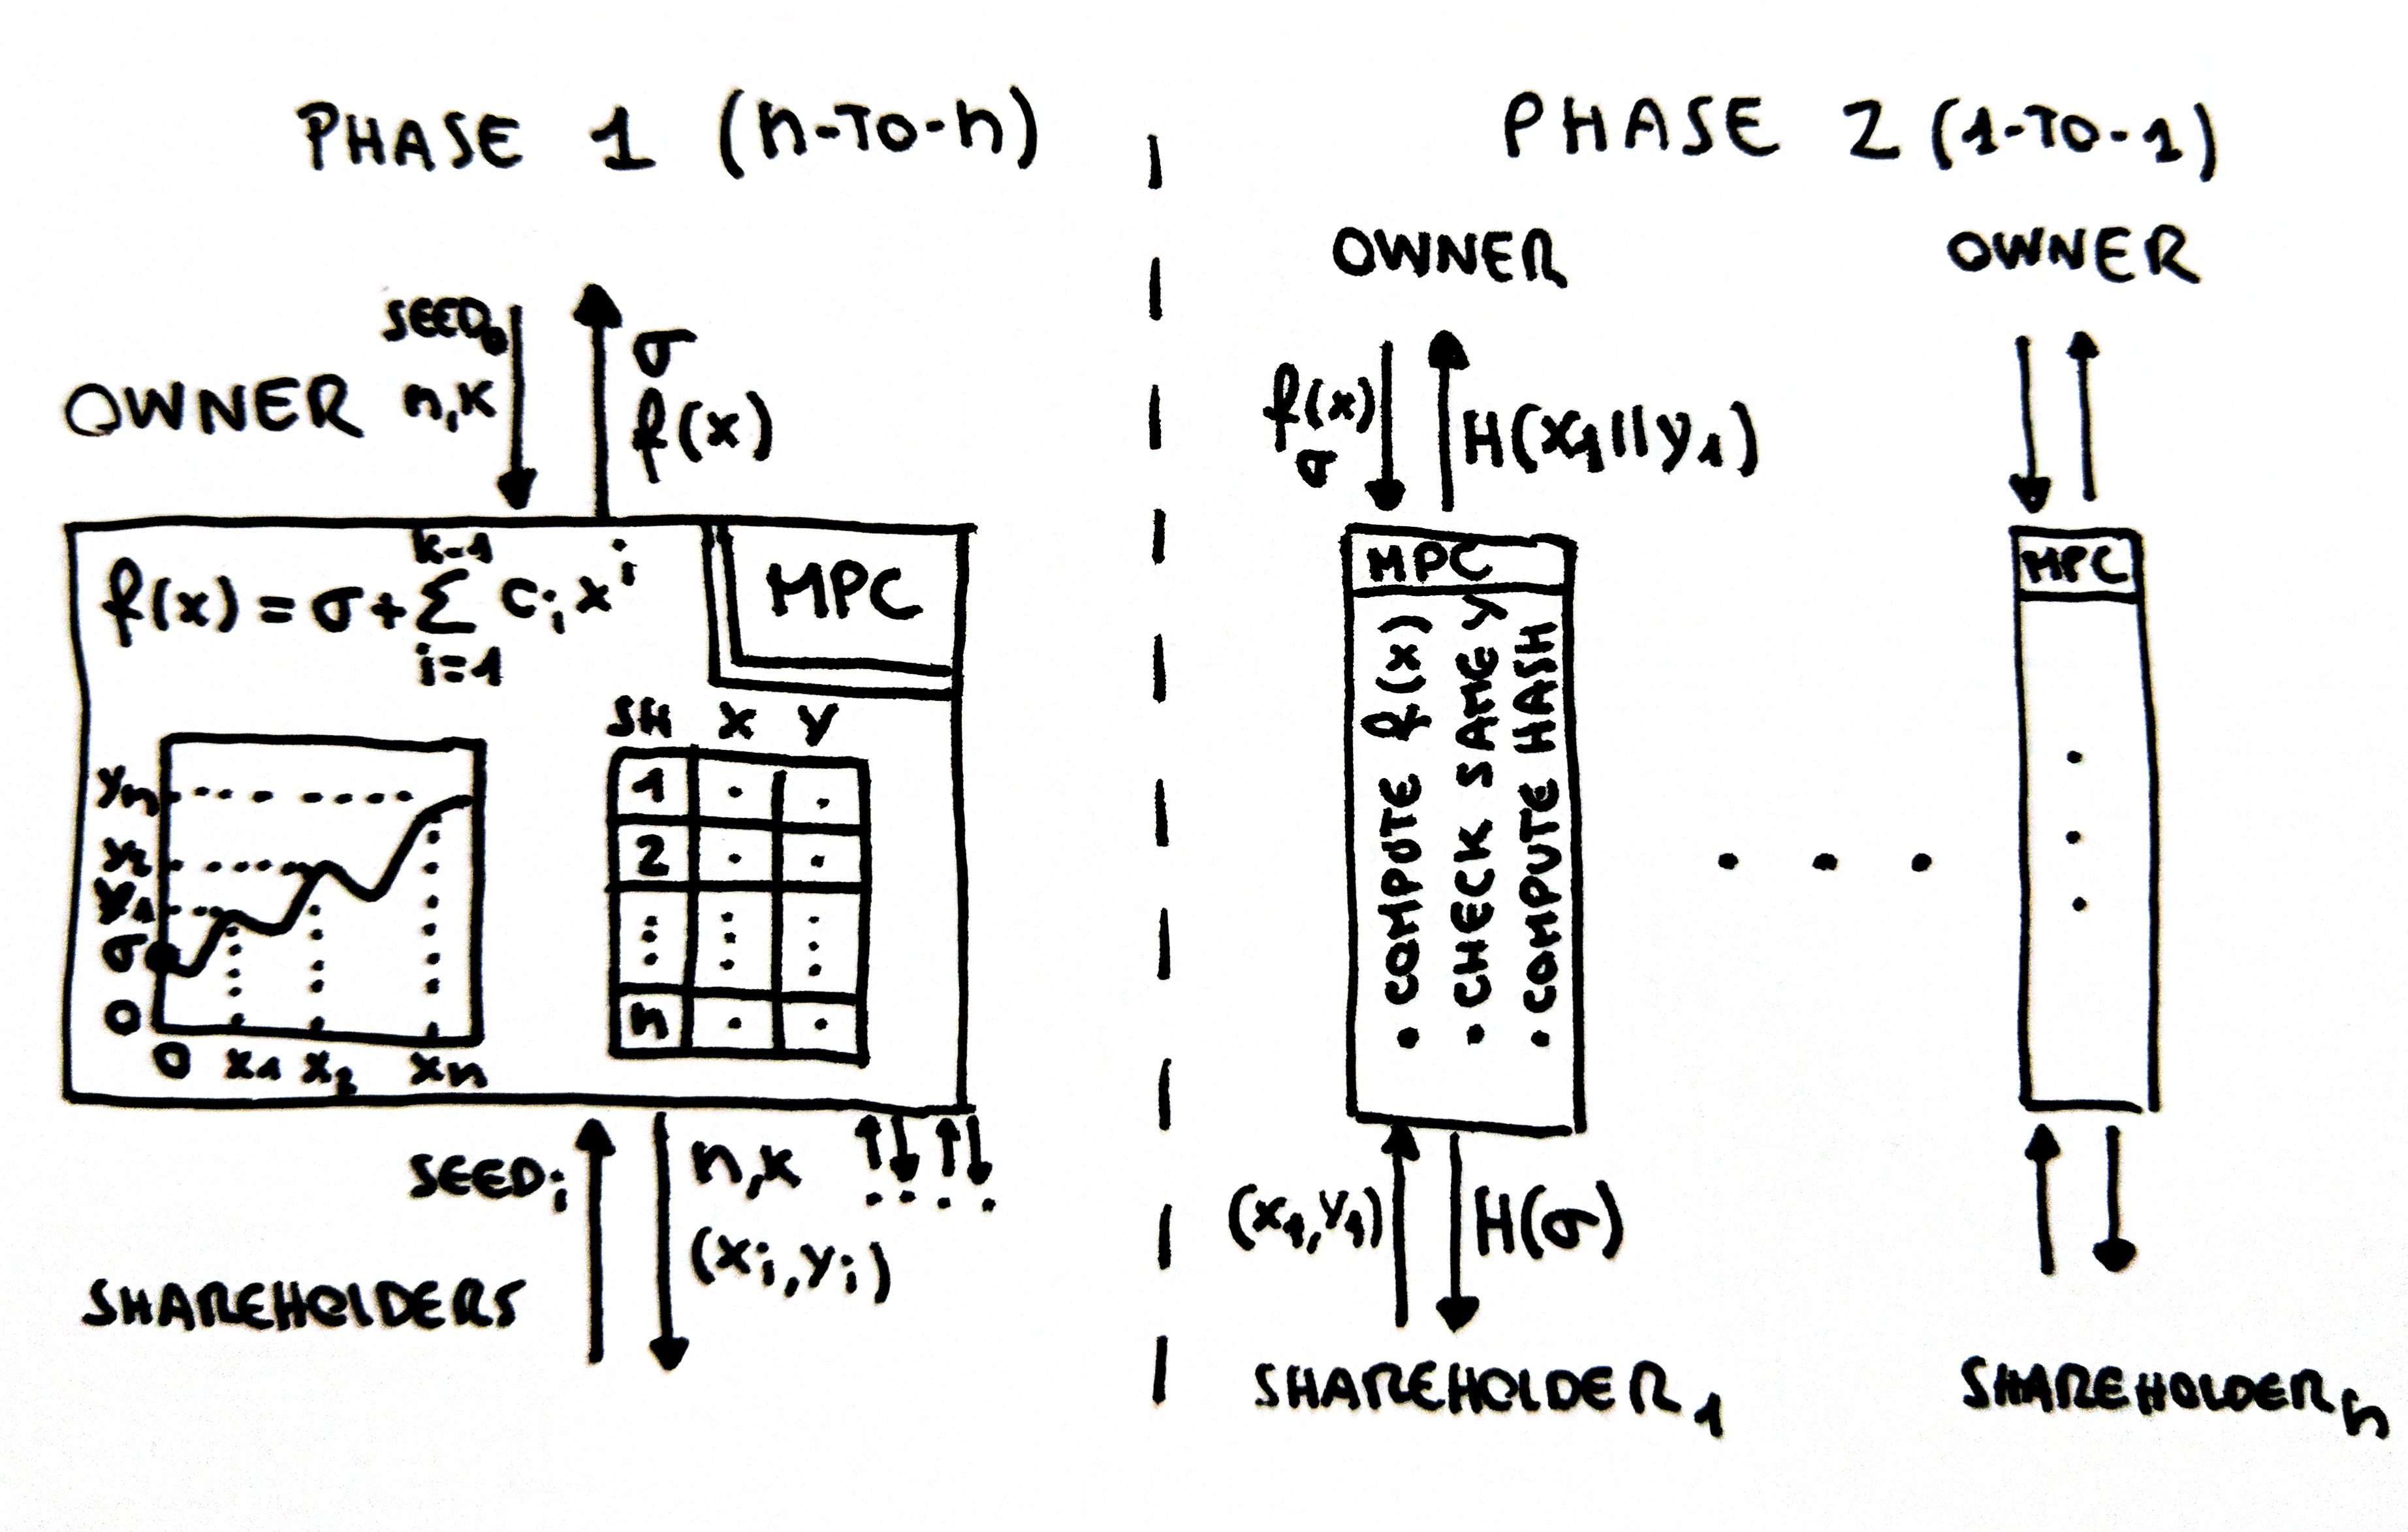 PHASE 1 (n-TO-n)
SEED₀
n,k
OWNER
σ
f(x)
f(x) = σ + Σ cᵢ xⁱ
k-1
i=1
MPC
SH X Y
1
2
n
yₙ
y₂
y₁
σ
0
0 x₁ x₂ xₙ
SEEDᵢ
n,k
(xᵢ,yᵢ)
SHAREHOLDERS
PHASE 2 (1-TO-1)
OWNER
f(x)
σ
H(x₁||y₁)
MPC
• COMPUTE f(x)
• CHECK SAME y
• COMPUTE HASH
(x₁,y₁)
H(σ)
SHAREHOLDER₁
. . .
OWNER
MPC
SHAREHOLDERₙ